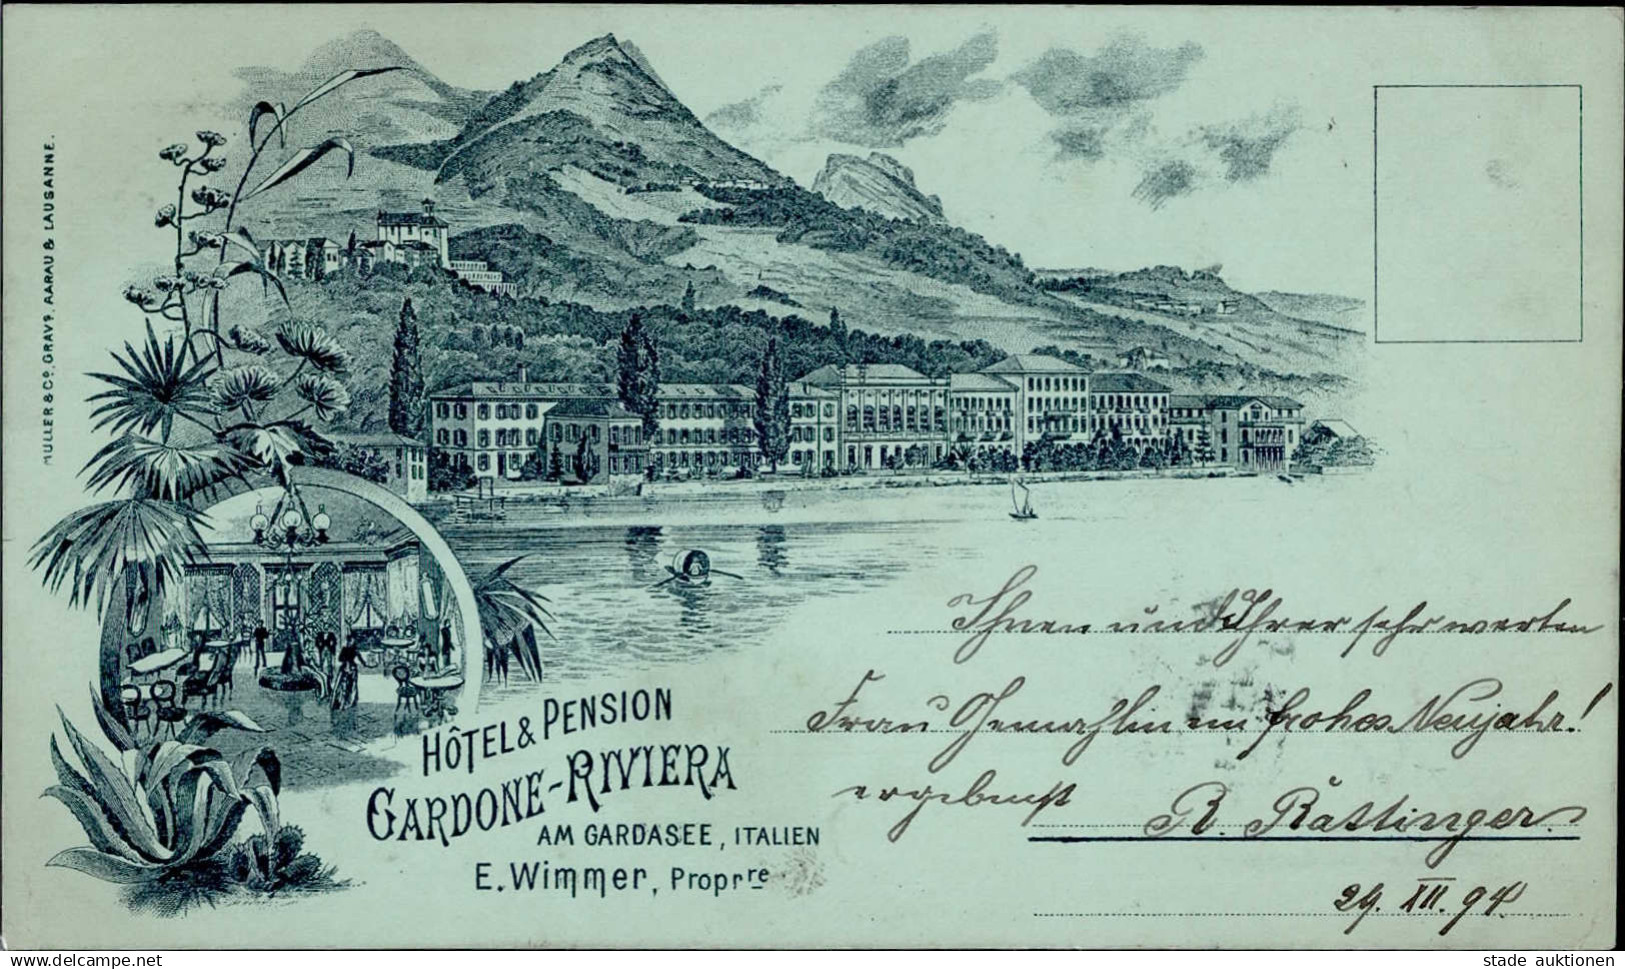 MÜLLER & Cº. GRAVS. AARAU & LAUSANNE.
HÔTEL & PENSION
GARDONE-RIVIERA
AM GARDASEE, ITALIEN
E. Wimmer, Proprre
Ihnen und Ihrer sehr werten
Frau Gemahlin ein frohes Neujahr!
ergebenst R. Rättinger.
29. XII. 94.
delcampe.net
stade auktionen